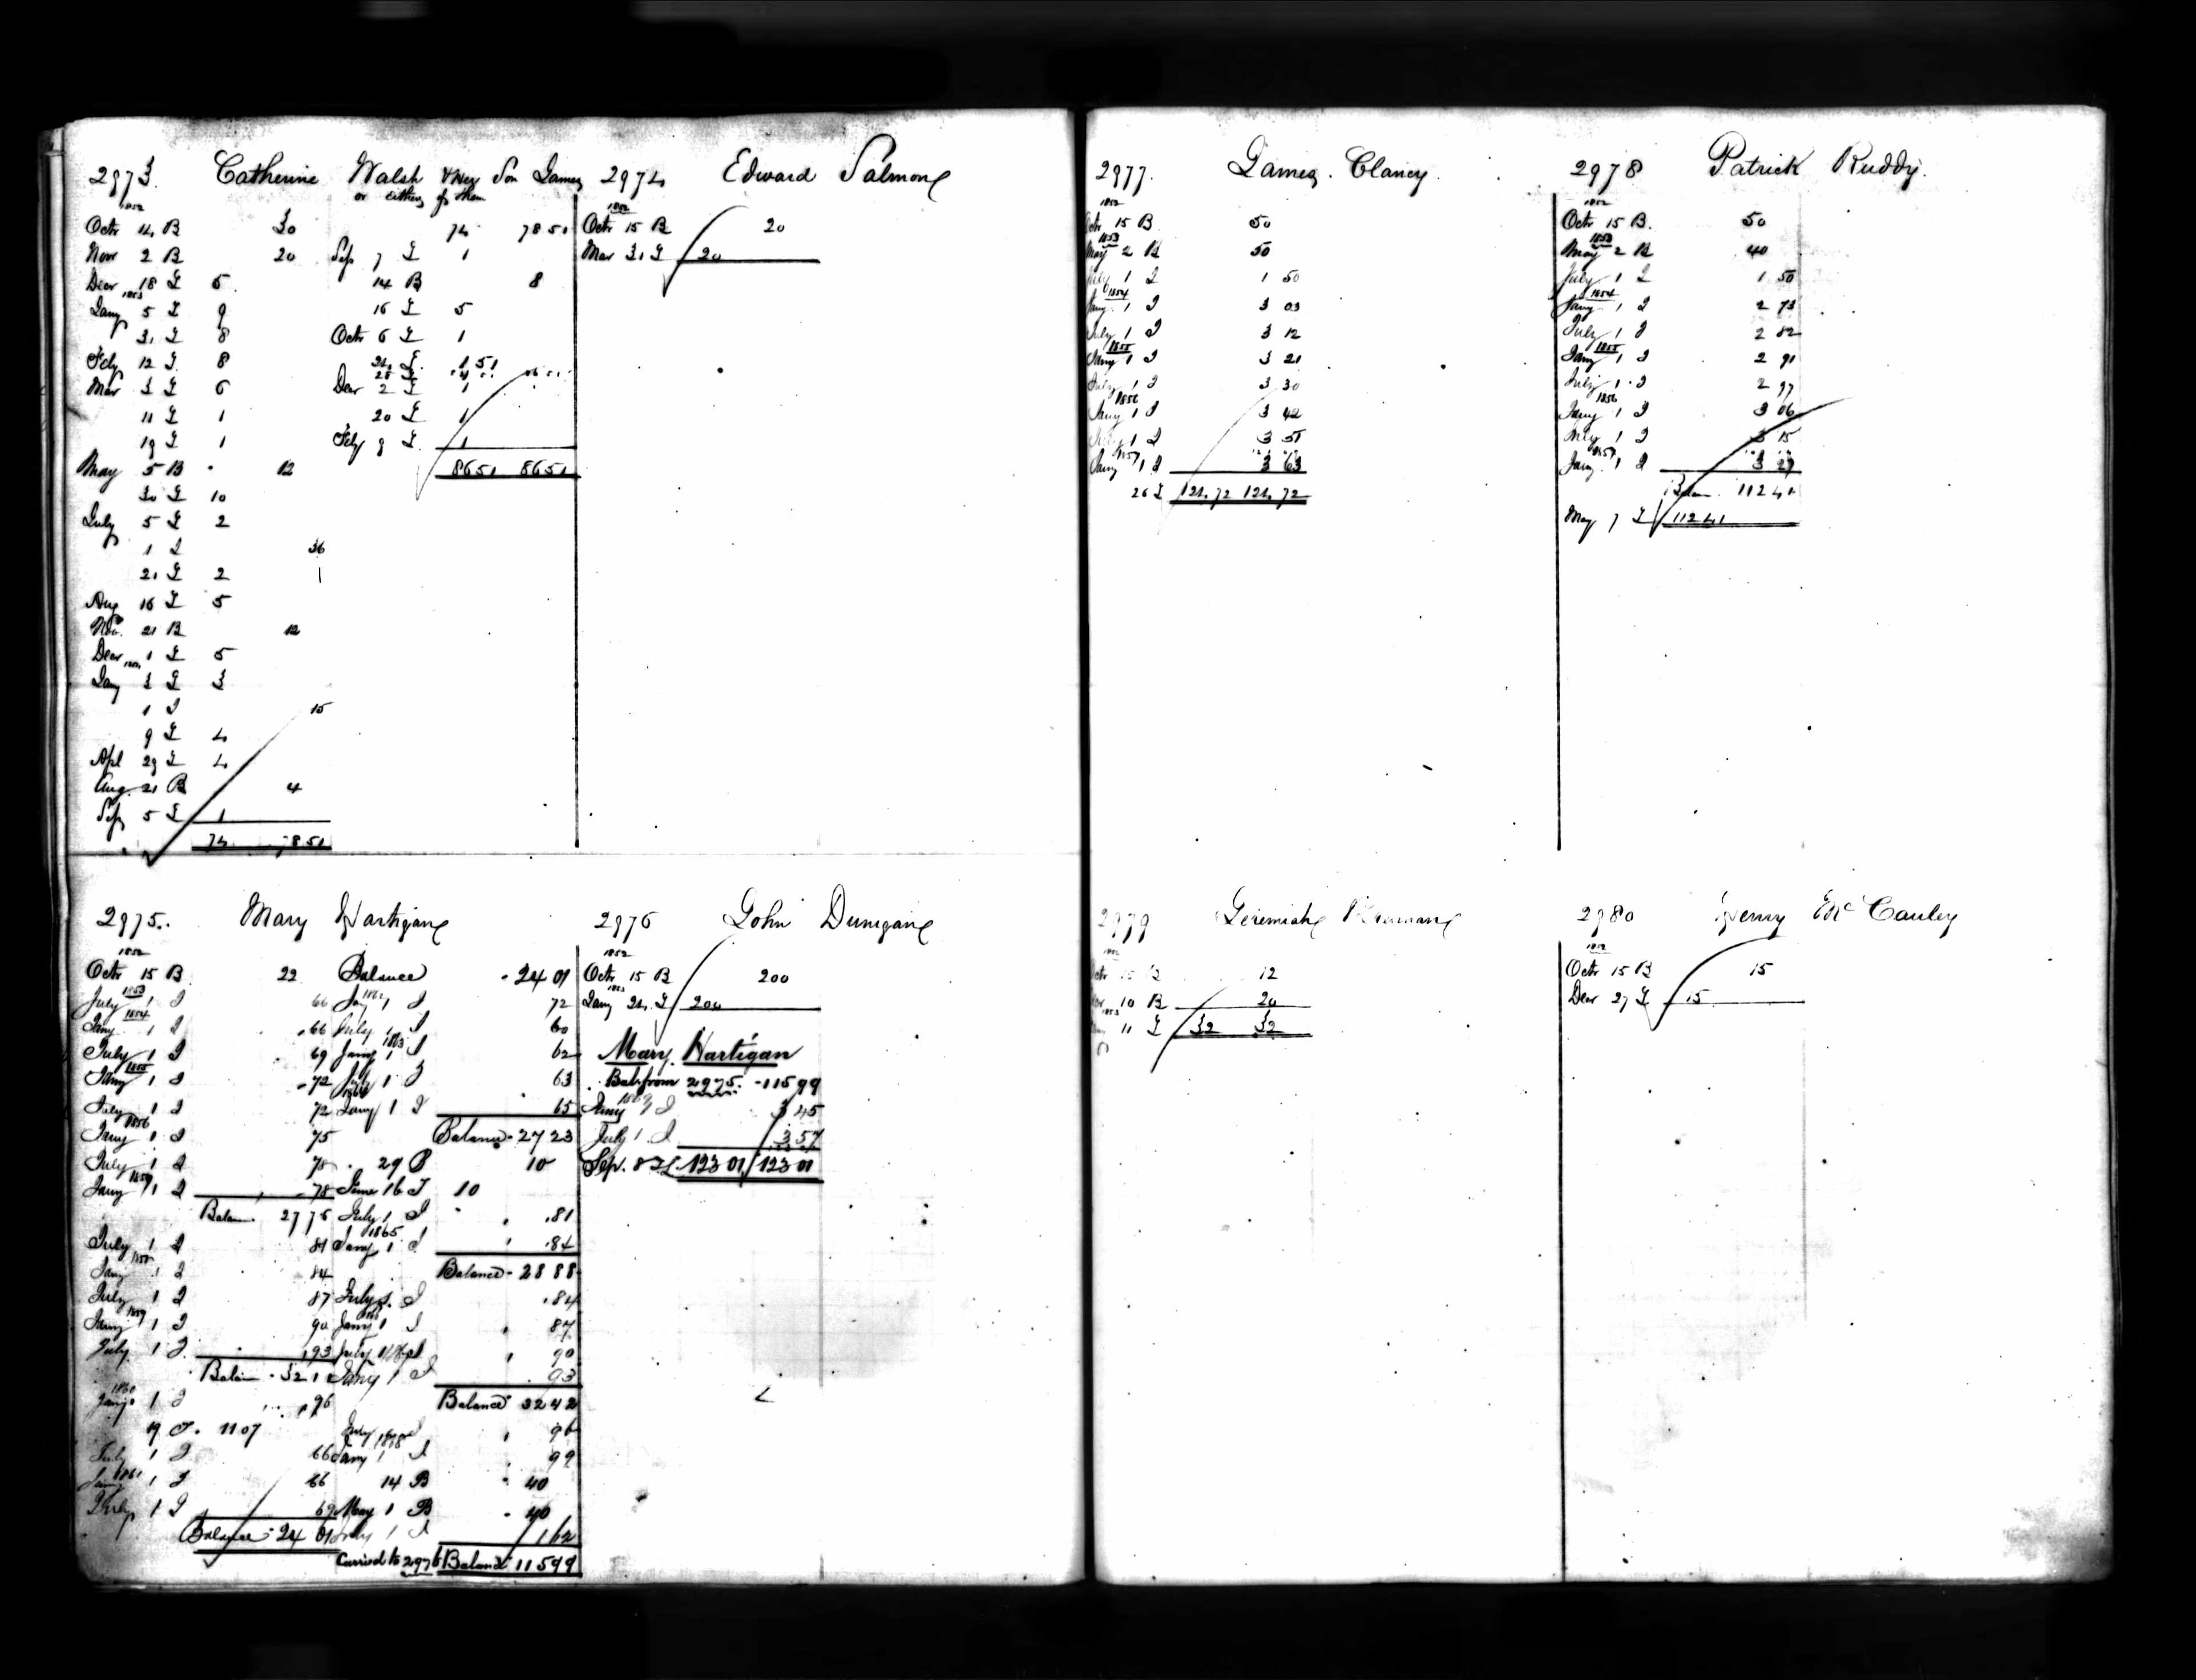 2973 Catherine Walsh & Her Son James
or either of them
1852
Octr 14 B 30 74 7851
Novr 2 B 20 Sep 7 I 1
Decr 18 I 5 14 B 8
1853
Jany 5 I 9 16 I 5
31 I 8 Octr 6 I 1
Feby 12 I 8 24 I 1 51
Mar 3 I 6 Decr 2 I 1
11 I 1 20 I 1
19 I 1 Feby 9 I 1
May 5 B 12 8651 8651
30 I 10
July 5 I 2
1 I 36
21 I 2
Aug 16 I 5
Nov. 21 B 12
Decr 1 I 5
1854
Jany 3 I 3
1 I 15
9 I 4
Apl 29 I 4
Aug. 21 B 4
Sep 5 I 1
74 7851
2974 Edward Salmon
1852
Octr 15 B 20
Mar 31 I 20
2975. Mary Hartigan
1852
Octr 15 B 22
1853
July 1 I 66
1854
Jany 1 I 66
July 1 I 69
1855
Jany 1 I 72
July 1 I 72
1856
Jany 1 I 75
July 1 I 78
1857
Jany 1 I 78
Balan 2775
July 1 I 81
1858
Jany 1 I 84
July 1 I 87
1859
Jany 1 I 90
July 1 I 93
Balan 3210
1860
Jany 1 I 96
19 I. 1107
July 1 I 66
1861
Jany 1 I 66
July 1 I 69
Balance 24 01
Balance 24 01
1862
Jany 1 I 72
July 1 I 60
1863
Jany 1 I 62
July 1 I 63
1864
Jany 1 I 65
Balance 27 23
29 B 10
June 16 I 10
July 1 I 81
1865
Jany 1 I 84
Balance 28 88
July 1 I 84
Jany 1 I 87
July 1 I 90
Jany 1 I 93
Balance 32 42
July 1 I 96
1868
Jany 1 I 99
14 B 40
May 1 B 40
July 1 I 1 62
Carried to 2976 Balance 115 99
2976 John Dunigan
1852
Octr 15 B 200
1853
Jany 24 I 200
Mary Hartigan
Bal from 2975. 115 99
1869
Jany 1 I 3 45
July 1 I 3 57
Sep. 8 I 123 01 123 01
2977. James Clancy
1852
Octr 15 B 50
1853
May 2 B 50
July 1 I 1 50
1854
Jany 1 I 3 03
July 1 I 3 12
1855
Jany 1 I 3 21
July 1 I 3 30
1856
Jany 1 I 3 42
July 1 I 3 51
1857
Jany 1 I 3 63
26 I 124 72 124 72
2978 Patrick Ruddy.
1852
Octr 15 B. 50
1853
May 2 B 40
July 1 I 1 50
1854
Jany 1 I 2 73
July 1 I 2 82
1855
Jany 1 I 2 91
July 1 I 2 97
1856
Jany 1 I 3 06
July 1 I 3 15
1857
Jany 1 I 3 27
Balan 112 41
May 7 I 112 41
2979 Jeremiah
1852
Octr 15 B 12
10 B 20
1853
11 I 32 32
2980 Henry McCauley
1852
Octr 15 B 15
Decr 27 I 15